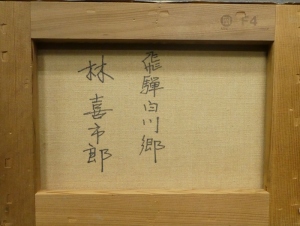 飛騨白川郷
林喜市郎
F4